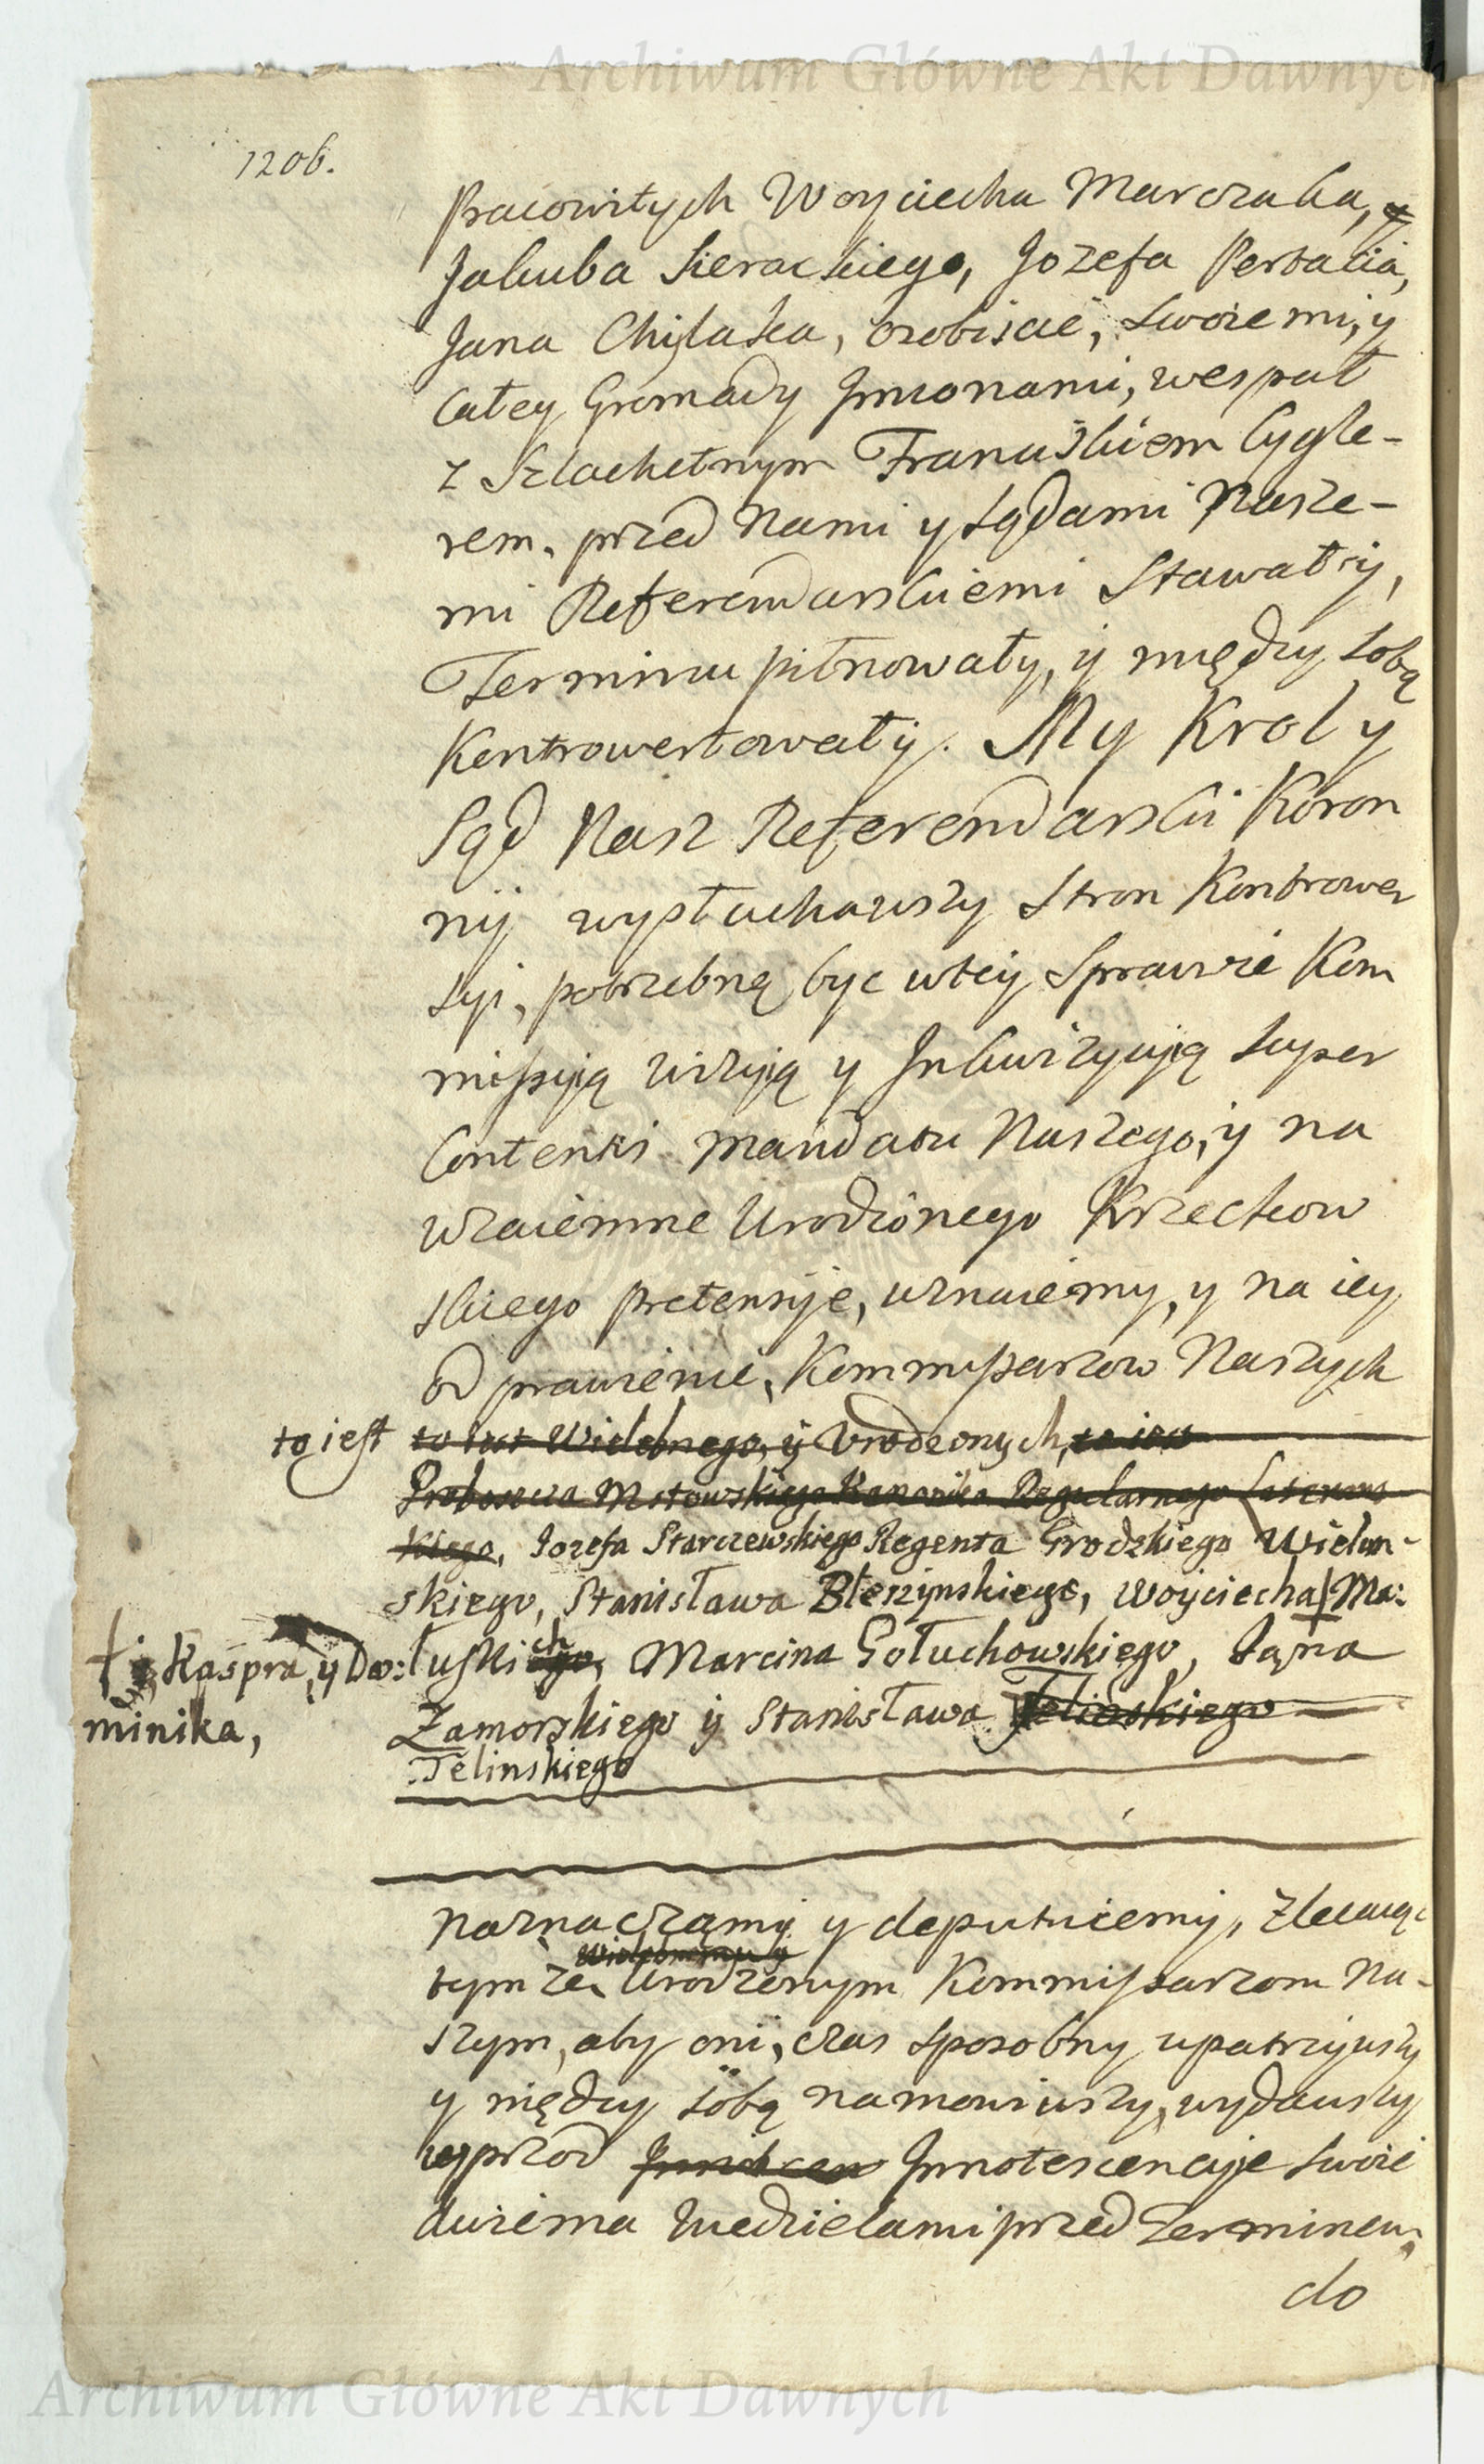 Archiwum Główne Akt Dawnych
1206.
Pracowitych Woyciecha Marczaka, y
Jakuba Sierackiego, Jozefa Perbacia,
Jana Chylaska, osobiscie, swoiemi, y
całey Gromady Jmionami, wespół
z Szlachetnym Franciszkiem Cygle-
rem, przed Nami y Sądami Nasze-
mi Referendarskiemi Stawały,
Terminu pilnowały, y między sobą
Kontrowertowały. My Krol y
Sąd Nasz Referendarski Koron
ny wysłuchawszy Stron Kontrower
syi, potrzebną byc wtey Sprawie Kom
missyją wizyją y Jnkwizycyją super
Contentis Mandatu Naszego, y na
wzaiemne Urodzonego Krzeckow
skiego pretensyje, uznaiemy, y na iey
odprawienie, Kommissarzow Naszych
to iest to iest Wielebnego, y Urodzonych, to iest
Proboszcza Mstowskiego Kanonika Regularnego Laterans
kiego, Jozefa Starczewskiego Regenta Grodzkiego Wielun-
skiego, Stanisława Bleszynskiego, Woyciecha † Ma:
† Kaspra, y Do: łuskich, Marcina Gołuchowskiego, Jana
minika, Zamorskiego y Stanisława
Telinskiego
naznaczamy y deputuiemy, Zlecaiąc
Wielebnemu y
tym ze Urodzonym Kommissarzom Na-
szym, aby oni, czas sposobny upatrzywszy
y między sobą namowiwszy, wydawszy
wprzod Jnnotescencyje swoie
dwiema Niedzielami przed Terminem,
do
Archiwum Główne Akt Dawnych